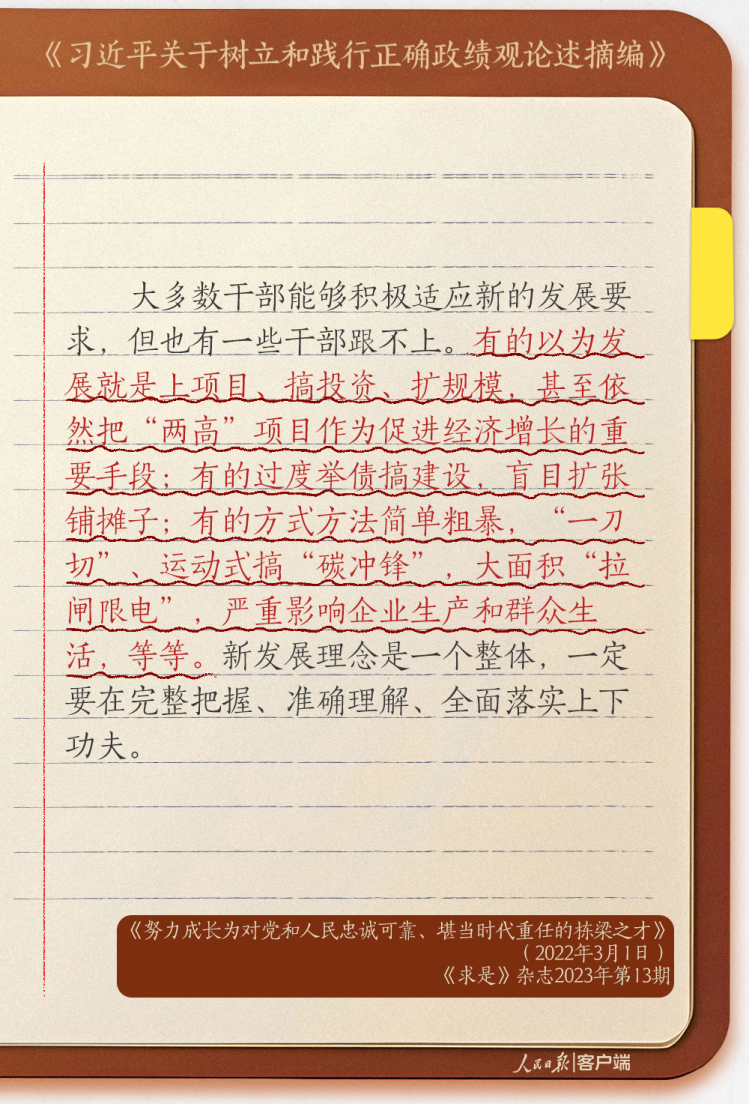 《习近平关于树立和践行正确政绩观论述摘编》
大多数干部能够积极适应新的发展要
求，但也有一些干部跟不上。有的以为发
展就是上项目、搞投资、扩规模，甚至依
然把“两高”项目作为促进经济增长的重
要手段；有的过度举债搞建设，盲目扩张
铺摊子；有的方式方法简单粗暴，“一刀
切”、运动式搞“碳冲锋”，大面积“拉
闸限电”，严重影响企业生产和群众生
活，等等。新发展理念是一个整体，一定
要在完整把握、准确理解、全面落实上下
功夫。
《努力成长为对党和人民忠诚可靠、堪当时代重任的栋梁之才》
（2022年3月1日）
《求是》杂志2023年第13期
人民日报|客户端